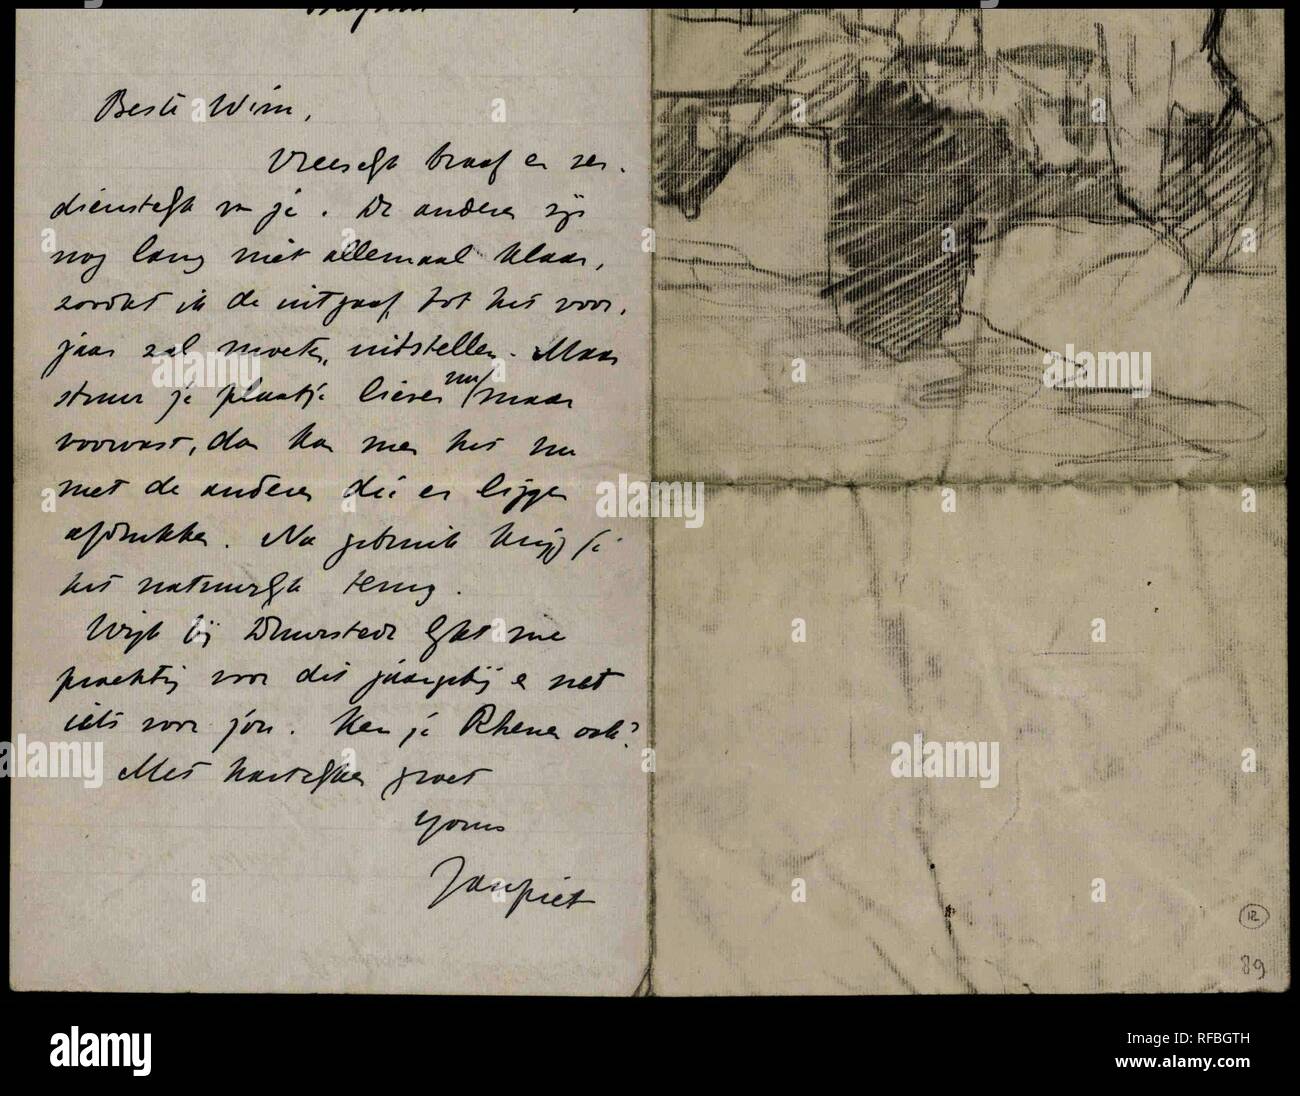 Beste Wim,
Vreeselk braaf en ver-
dienstelk v. je. De andere zijn
nog lang niet allemaal klaar,
zoodat ik de uitgaaf tot het voor-
jaar zal moeten uitstellen. Maar
stuur je plaatje liever nu maar
voorvast, dan kan men het nu
met de anderen die er liggen
afdrukken. Na gebruik krijg je
het natuurlk terug.
Wijk bij Duurstede lykt me
prachtig voor dit jaargetij en net
iets voor jou. Ken je Rhenen ook?
Met hartelyken groet
yours
Jan Piet
12
89
alamy
alamy
alamy
alamy
alamy
alamy
a
a
a
alamy
RFBGTH
www.alamy.com